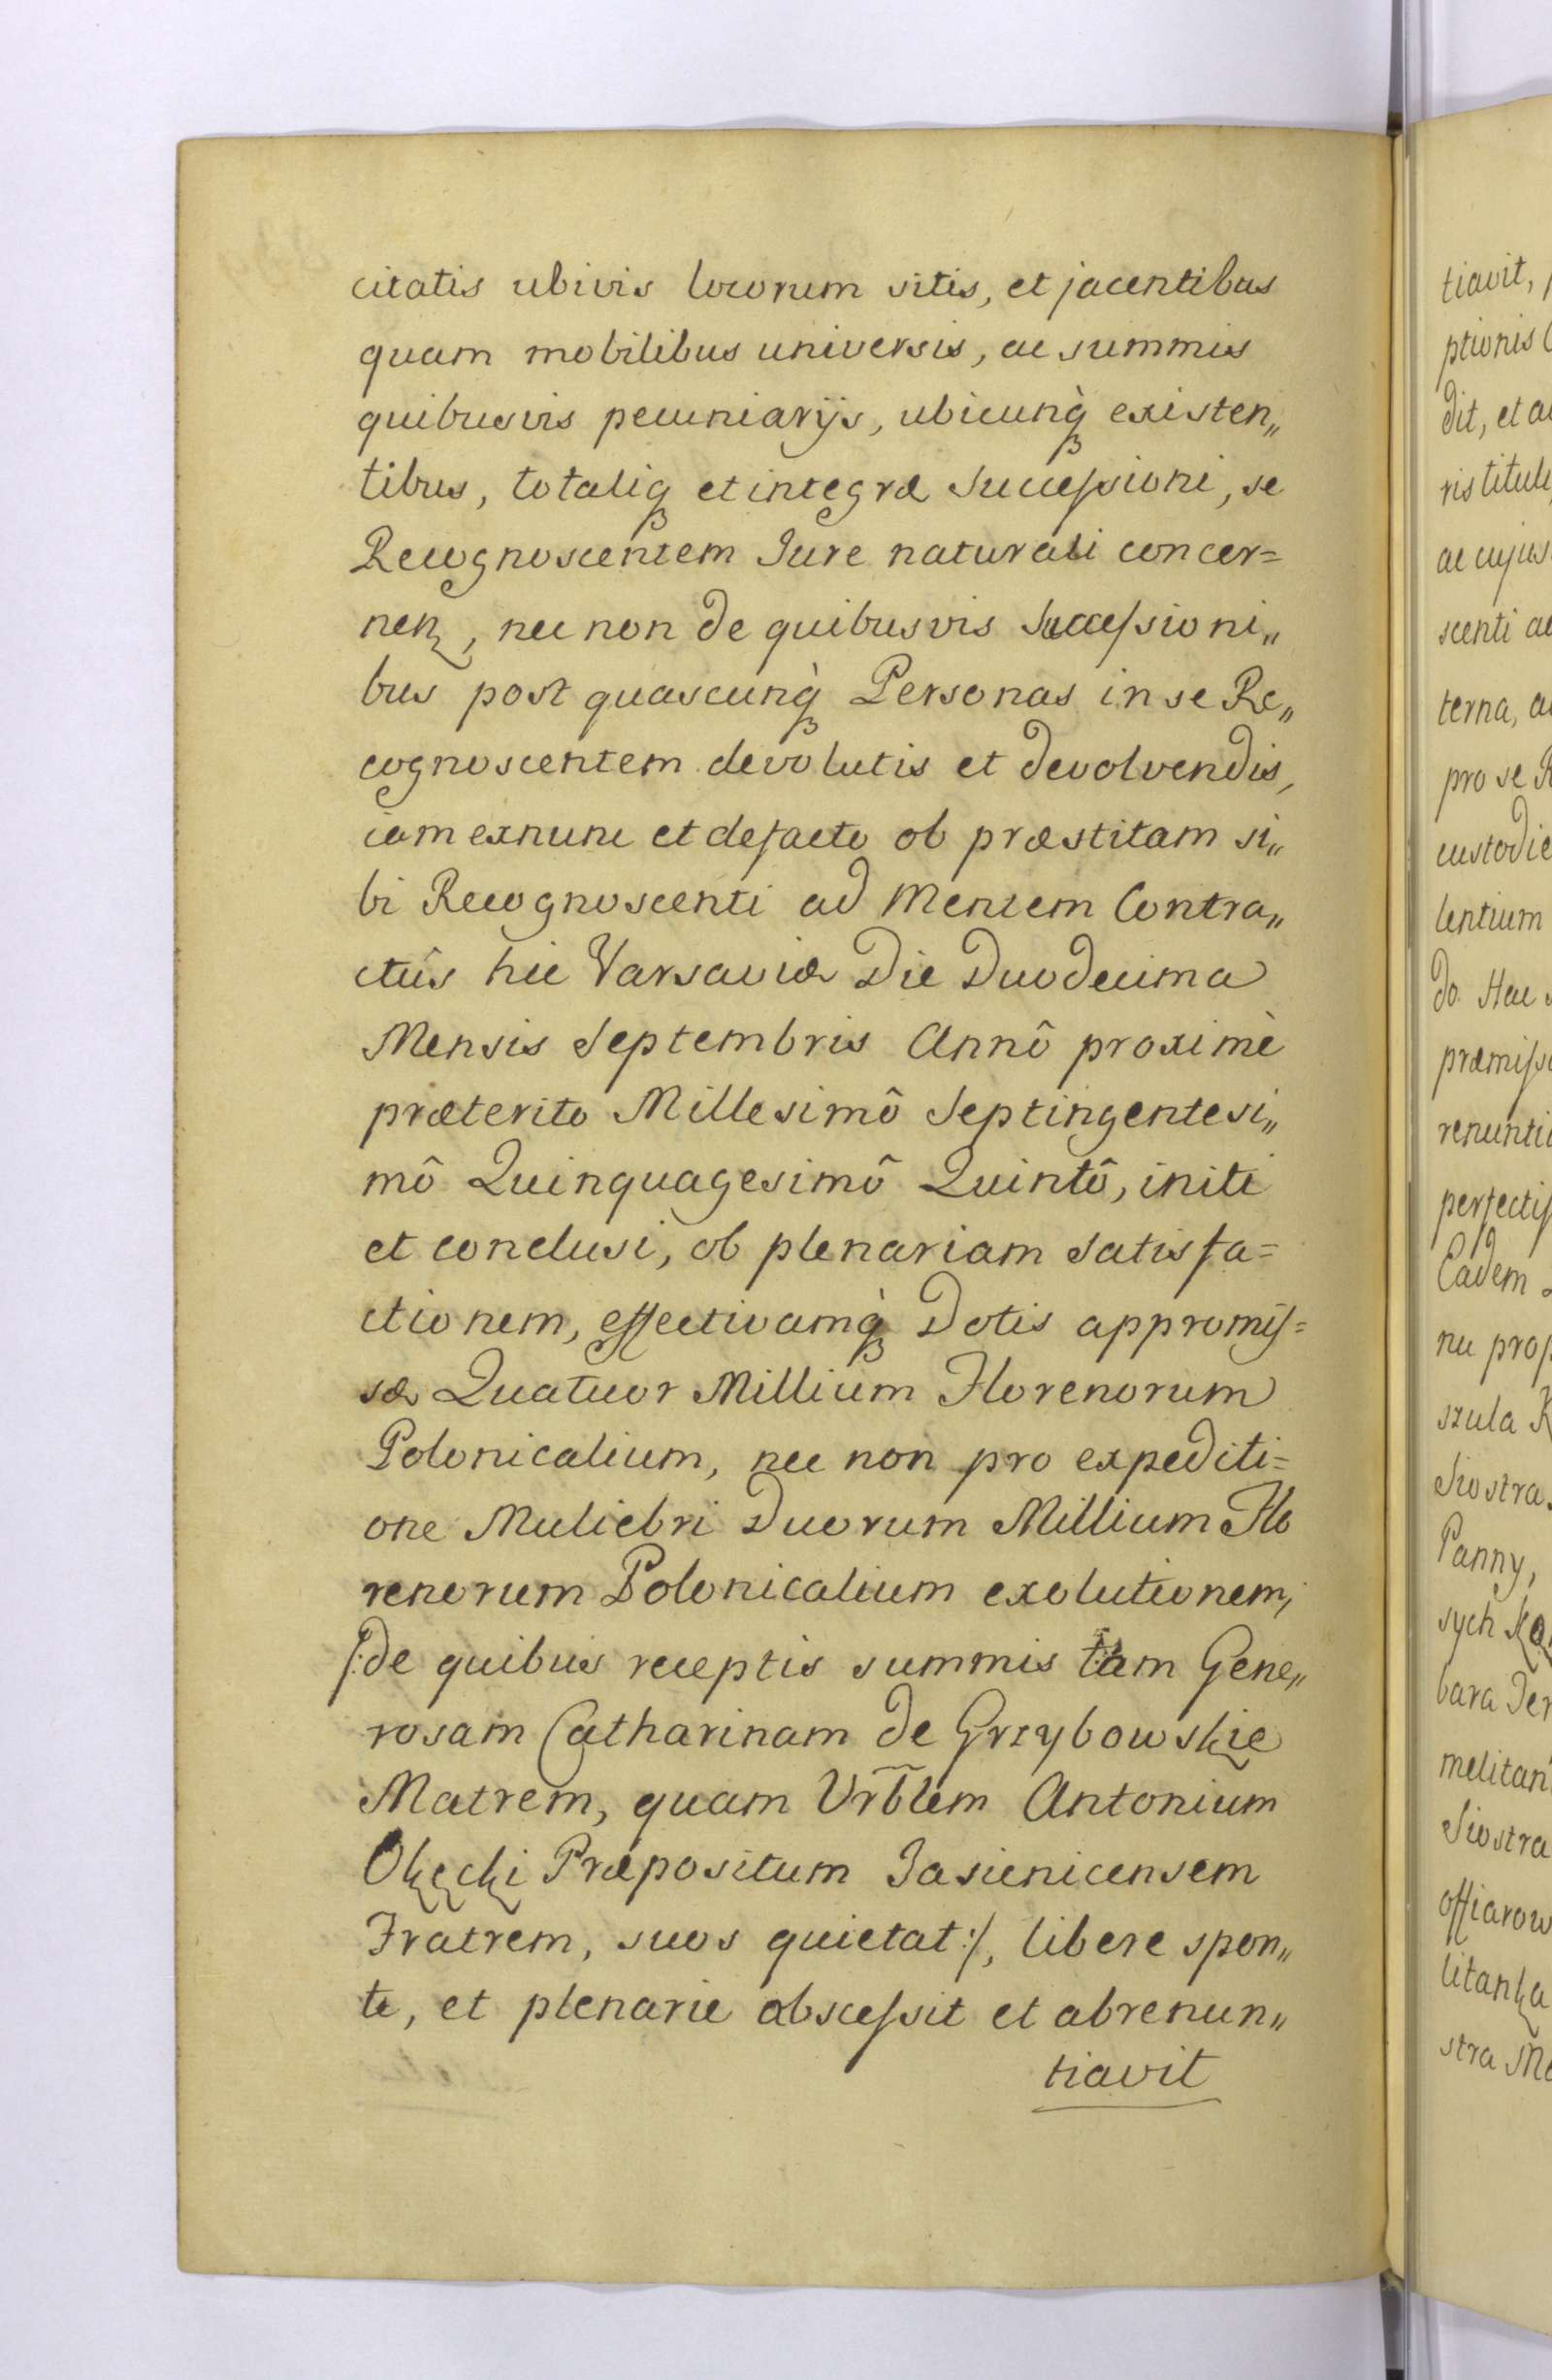 citatis ubivis locorum sitis, et jacentibus
quam mobilibus universis, ac summis
quibusvis pecuniarijs, ubicunq̀ꝫ existen„
tibus, totaliqꝫ et integræ Successioni, se
Recognoscentem Jure naturali concer=
nen, nec non de quibusvis Successioni„
bus post quascunq̀ꝫ Personas in se Re„
cognoscentem devolutis et devolvendis,
iam exnunc et defacto ob præstitam si„
bi Recognoscenti ad Mentem Contra„
ctûs hic Varsaviæ Die Duodecima
Mensis Septembris Annô proximè
præterito Millesimô Septingentesi„
mô Quinquagesimô Quintô, initi
et conclusi, ob plenariam Satisfa=
ctionem, effectivamq̀ꝫ Dotis appromis=
sæ Quatuor Millium Florenorum
Polonicalium, nec non pro expediti=
one Muliebri Duorum Millium Flo
renorum Polonicalium exolutionem,
/:de quibus receptis summis tam Gene„
rosam Catharinam de Grzybowskie
Matrem, quam Vrb̃lem Antonium
Okęcki Præpositum Jasienicensem
Fratrem, suos quietat:/, libere spon„
te, et plenarie abscessit et abrenun„
tiavit
tiavit,
ptionis
dit, et
ris
ac cujus
scenti
terna,
pro se
custodie
lentium
do. Hac
præmiss
renunti
perfectis
Eadem
nu prop
szula
Siostra
Panny,
sych
bara
melitan
Siostra
offiarow
litanka
stra